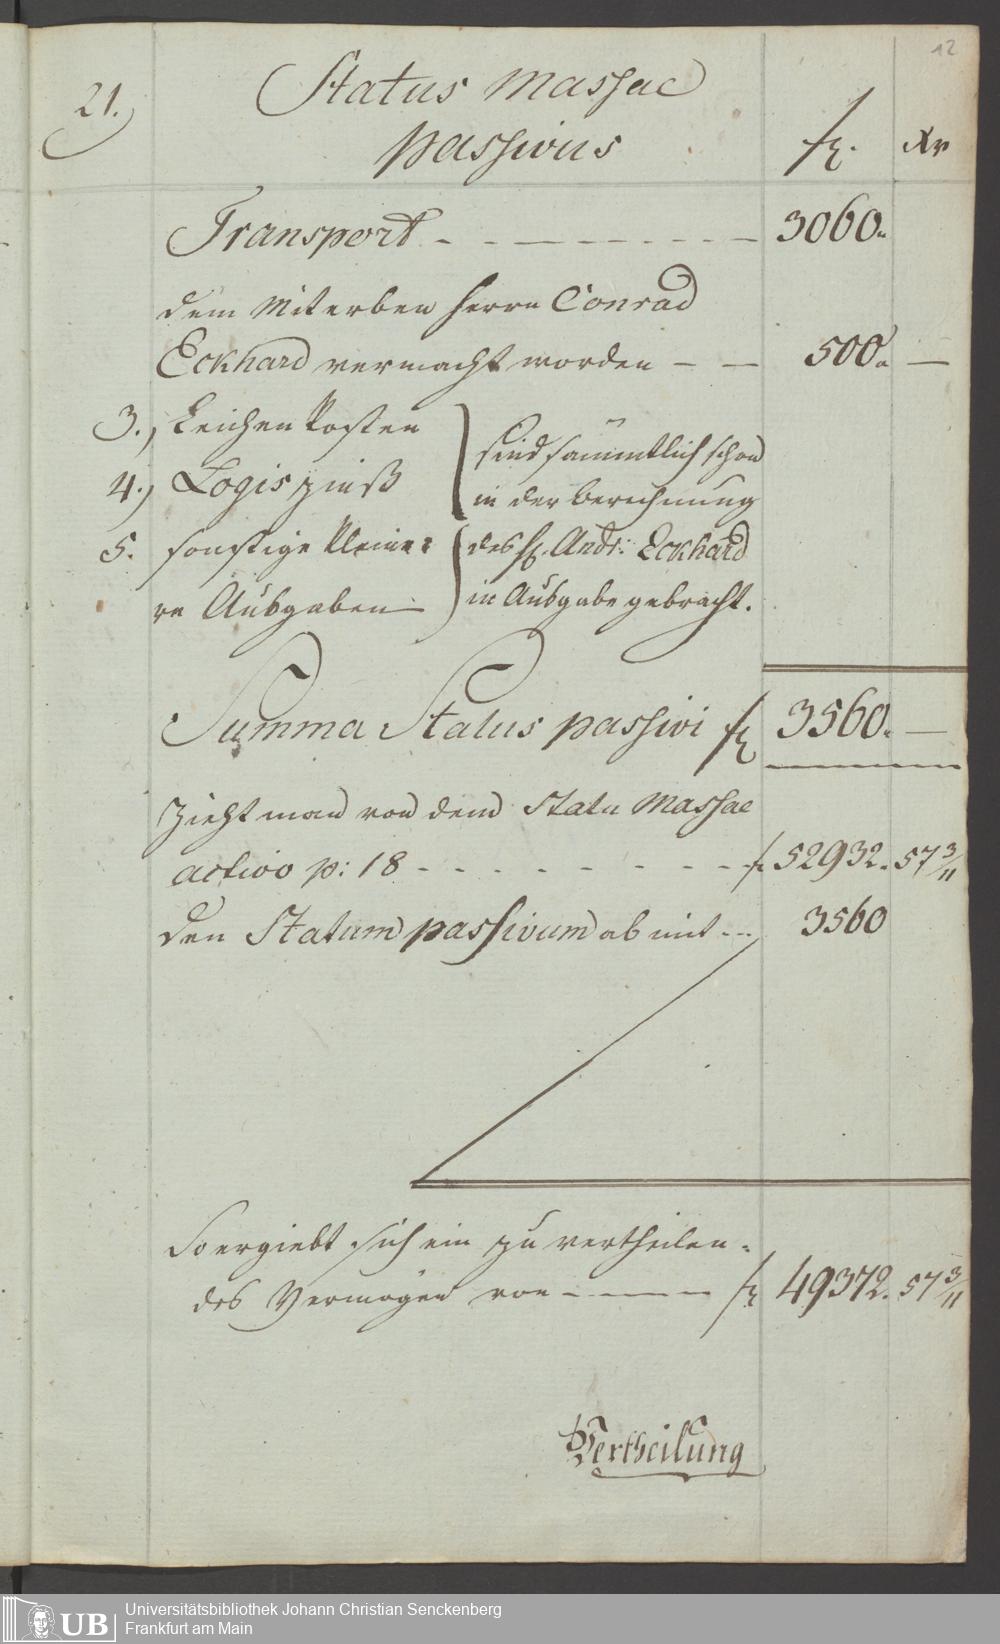 12
21.
Status Massae
passivus
fl. Xr
Transport - - - - - - - - 3060.
dem Miterben Herrn Conrad
Eckhard vermacht worden - - 500. —
3.) Leichen Kosten
4.) Logis zinß
5. sonstige kleine:
re Ausgaben
sind sämmtlich schon
in der berechnung
des H. Andr: Eckhard
in Ausgabe gebracht.
Summa Status passivi fl 3560. —
Zieht man von dem Statu Massae
activo p: 18 - - - - - - - fl 52932. 57 3/11
den Statum passivum ab mit - - - 3560
So ergiebt sich ein zu vertheilen-
des Vermögen von - - - - fl 49372. 57 3/11
Vertheilung
UB
Universitätsbibliothek Johann Christian Senckenberg
Frankfurt am Main